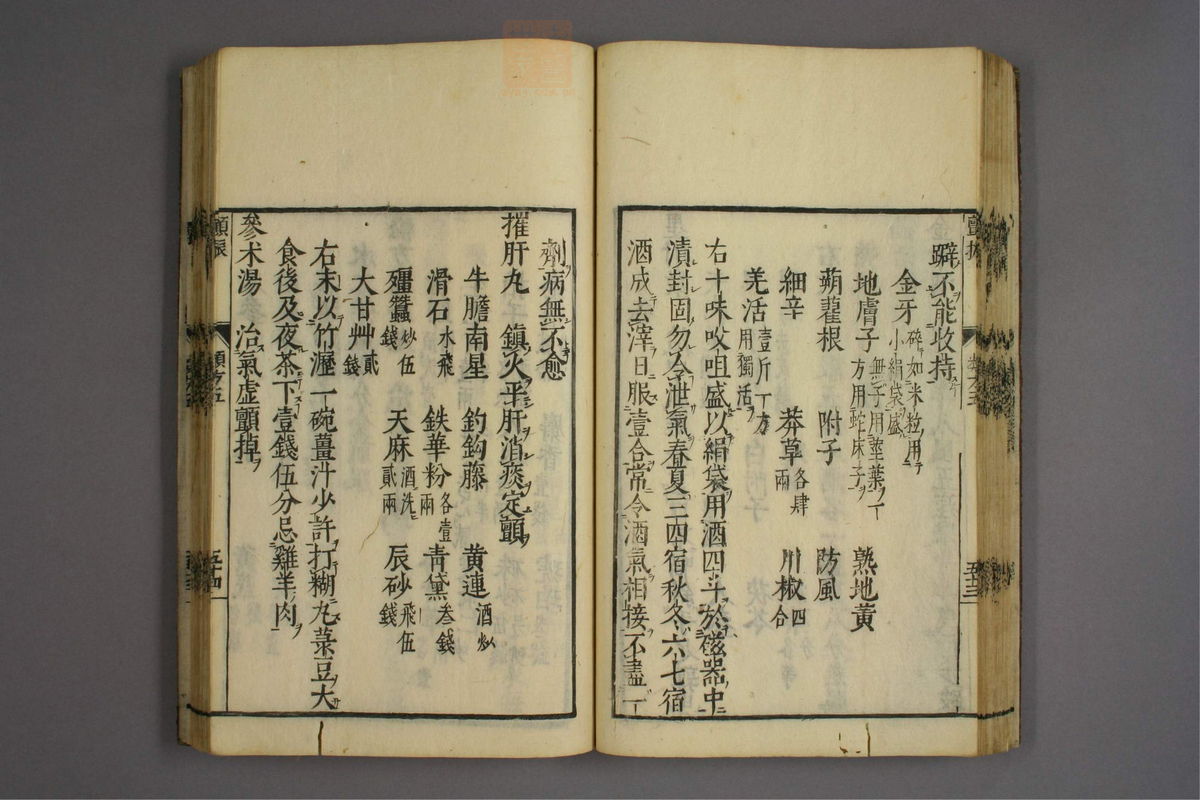 躃不能收持
金牙碎如米粒用小絹袋盛
地膚子無子用莖葉一方用蛇床子 熟地黄
蒴藋根 附子 防風
細辛 莽草各肆兩 川椒四合
羌活壹斤一方用獨活
右十味㕮咀盛以絹袋用酒四斗於磁器中
漬封固勿令泄氣春夏三四宿秋冬六七宿
酒成去滓日服壹合常令酒氣相接不盡一
劑病無不愈
摧肝丸 鎮火平肝消痰定顫
牛膽南星 釣鉤藤 黄連酒炒
滑石水飛 鉄華粉各壹兩 青黛叁錢
殭蠶炒伍錢 天麻酒洗貳兩 辰砂飛伍錢
大甘艸貳錢
右末以竹瀝一碗薑汁少許打糊丸菉豆大
食後及夜茶下壹錢伍分忌雞羊肉
參术湯 治氣虚顫掉
顫振
類方五
五十四